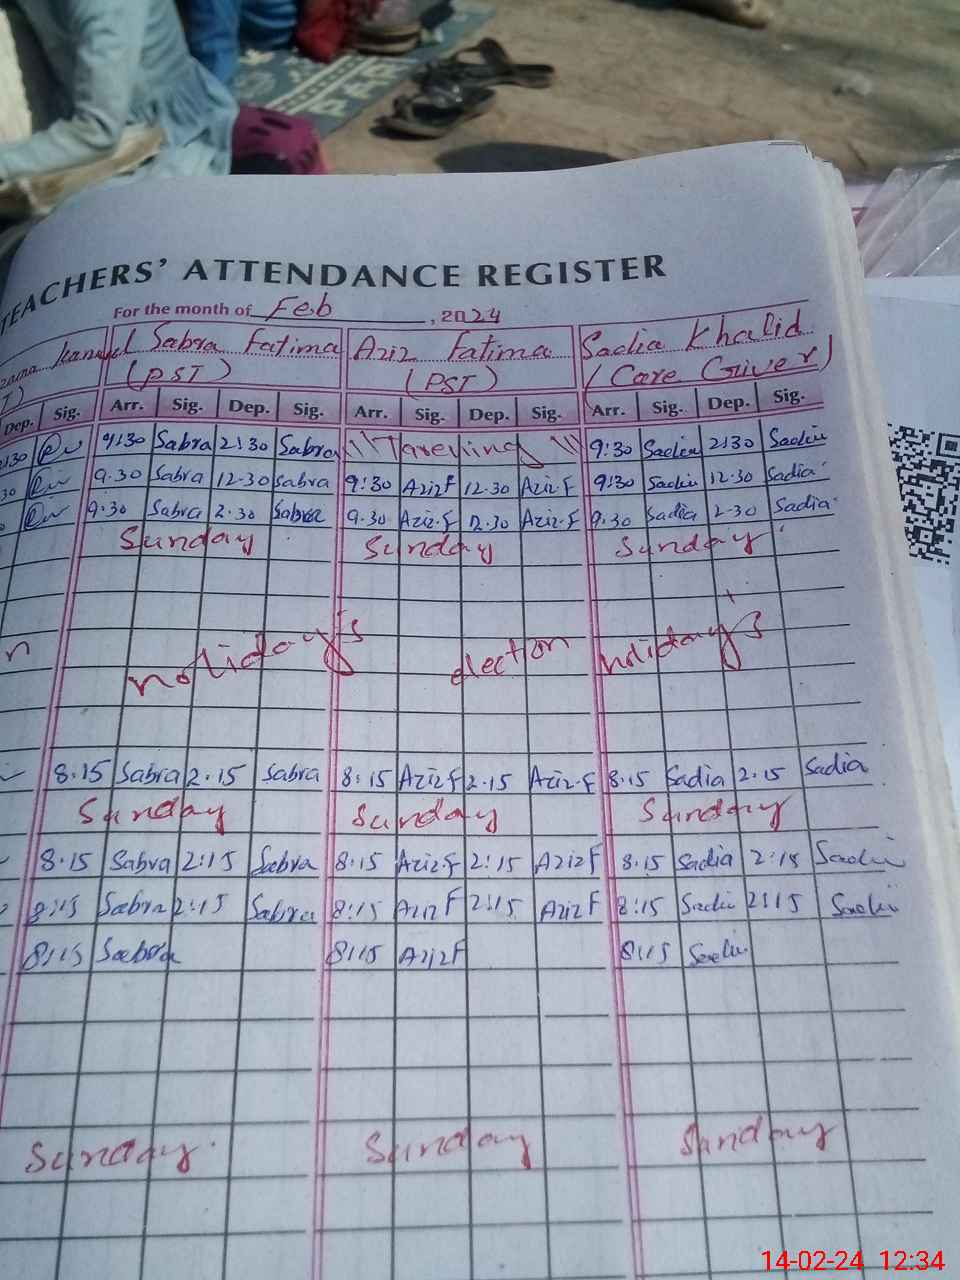 TEACHERS' ATTENDANCE REGISTER
For the month of Feb, 2024
Sabra Fatima Aziz Fatima Sadia Khalid
(PST) (PST) (Care Giver)
Dep. Sig. Arr. Sig. Dep. Sig. Arr. Sig. Dep. Sig. Arr. Sig. Dep. Sig.
9:30 Sabra 2:30 Sabra 9:30 Sadia 2:30 Sadia
9.30 Sabra 12-30 Sabra 9:30 Aziz F 12.30 Aziz.F 9:30 Sadia 12.30 Sadia
9.30 Sabra 2.30 Sabra 9.30 Aziz.F Aziz.F 9.30 Sadia 2-30 Sadia
Sunday Sunday Sunday
holiday's election holiday's
8.15 Sabra 2.15 Sabra 8.15 Aziz F 2.15 Aziz.F 8.15 Sadia 2.15 Sadia
Sunday Sunday Sunday
8.15 Sabra 2:15 Sabra 8:15 Aziz.F 2:15 Aziz F 8.15 Sadia 2:15 Sadia
8:15 Sabra 2:15 Sabra 8:15 Aziz F 2:15 Aziz F 8:15 Sadia 2:15 Sadia
8:15 Sabra 8:15 Aziz F 8:15 Sadia
Sunday Sunday Sunday
14-02-24 12:34